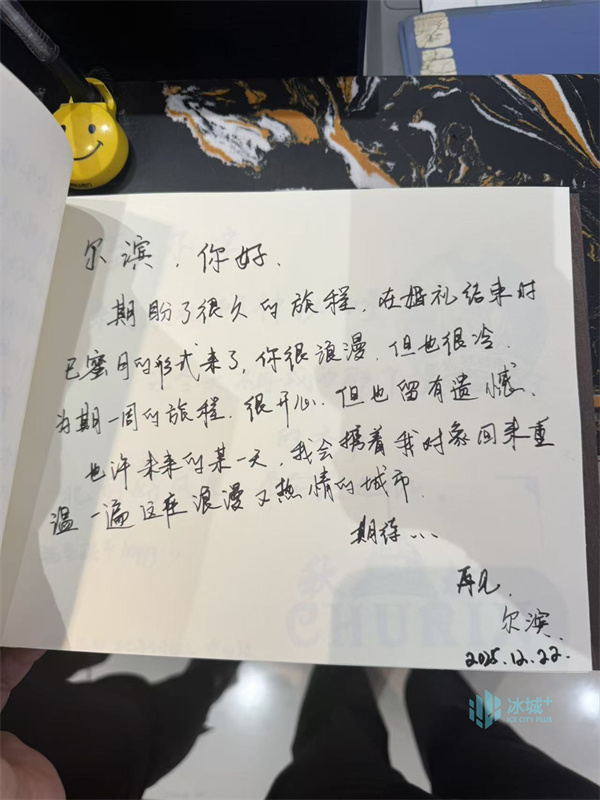 尔滨，你好，
期盼了很久的旅程，在婚礼结束时
已蜜月的形式来了，你很浪漫，但也很冷，
为期一周的旅程，很开心，但也留有遗憾、
也许未来的某一天，我会携着我对象回来重
温一遍这座浪漫又热情的城市，
期待...
再见，
尔滨，
2025.12.22.
冰城+
ICE CITY PLUS